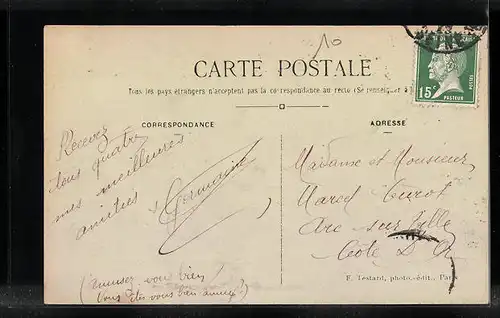 10
CARTE POSTALE
Tous les pays étrangers n'acceptent pas la correspondance au recto (Se renseigner à
CORRESPONDANCE
ADRESSE
15c
PASTEUR
POSTES
Recevez
tous quatre
mes meilleures
amitiés
Germaine
(Amusez-vous bien
Vous êtes vous bien amusés?)
Madame et Monsieur
Marcel Curot
Arc sur Tille
Côte D'Or
F. Testant, photo.-édit., Paris